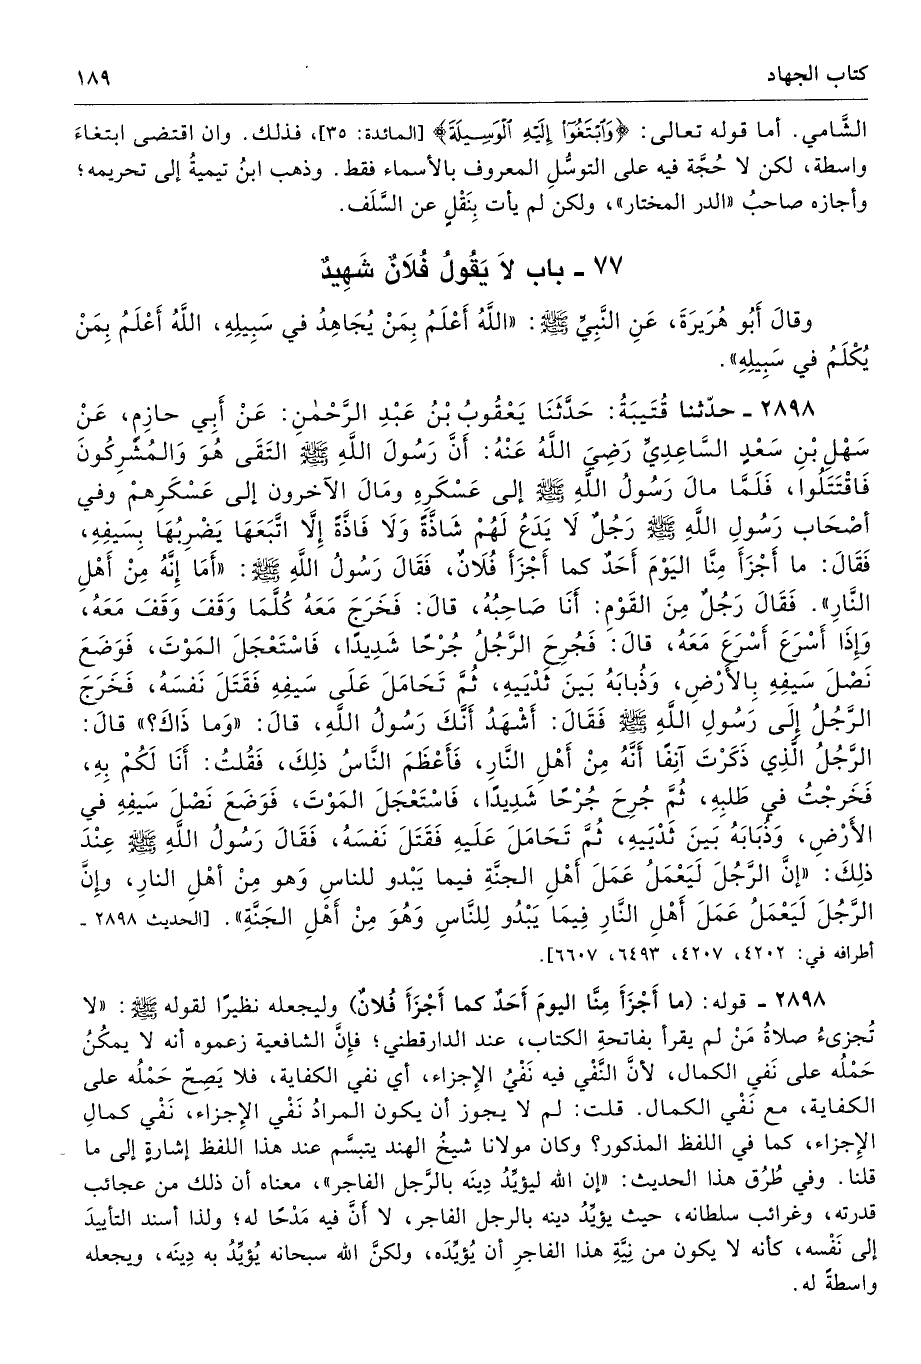 كتاب الجهاد ١٨٩
الشَّامي. أما قوله تعالى: ﴿وَٱبْتَغُوٓا۟ إِلَيْهِ ٱلْوَسِيلَةَ﴾ [المائدة: ٣٥]، فذلك. وان اقتضى ابتغاءَ
واسطة، لكن لا حُجَّة فيه على التوسُّلِ المعروف بالأسماء فقط. وذهب ابنُ تيميةُ إلى تحريمه؛
وأجازه صاحبُ «الدر المختار»، ولكن لم يأت بِنَقْلٍ عن السَّلَف.
٧٧ - باب لاَ يَقُولُ فُلَانٌ شَهِيدٌ
وقالَ أَبُو هُرَيرَةَ، عَنِ النَّبِيِّ ﷺ: «اللَّهُ أَعْلَمُ بِمَنْ يُجَاهِدُ في سَبِيلِهِ، اللَّهُ أَعْلَمُ بِمَنْ
يُكْلَمُ في سَبِيلِهِ».
٢٨٩٨ - حدّثنا قُتَيبَةُ: حَدَّثَنَا يَعْقُوبُ بْنُ عَبْدِ الرَّحْمٰنِ: عَنْ أَبِي حازِمٍ، عَنْ
سَهْلِ بْنِ سَعْدٍ السَّاعِدِيِّ رَضِيَ اللَّهُ عَنْهُ: أَنَّ رَسُولَ اللَّهِ ﷺ التَقَى هُوَ وَالمُشْرِكُونَ
فَاقْتَتَلُوا، فَلَمَّا مالَ رَسُولُ اللَّهِ ﷺ إلى عَسْكَرِهِ ومَالَ الآخرون إلى عَسْكَرِهِمْ وفي
أصْحَاب رَسُولِ اللَّهِ ﷺ رَجُلٌ لَا يَدَعُ لَهُمْ شاذَّةً وَلَا فَاذَّةً إِلَّا اتَّبَعَهَا يَضْرِبُهَا بِسَيفِهِ،
فَقَالَ: ما أَجْزَأَ مِنَّا اليَوْمَ أَحَدٌ كما أَجْزَأَ فُلَانٌ، فَقَالَ رَسُولُ اللَّهِ ﷺ: «أَمَا إِنَّهُ مِنْ أَهْلِ
النَّارِ». فَقَالَ رَجُلٌ مِنَ القَوْمِ: أَنَا صَاحِبُهُ، قالَ: فَخَرَجَ مَعَهُ كُلَّمَا وَقَفَ وَقَفَ مَعَهُ،
وَإِذَا أَسْرَعَ أَسْرَعَ مَعَهُ، قالَ: فَجُرِحَ الرَّجُلُ جُرْحًا شَدِيدًا، فَاسْتَعْجَلَ المَوْتَ، فَوَضَعَ
نَصْلَ سَيفِهِ بِالأَرْضِ، وَذُبابَهُ بَينَ ثَدْيَيهِ، ثُمَّ تَحَامَلَ عَلَى سَيفِهِ فَقَتَلَ نَفسَهُ، فَخَرَجَ
الرَّجُلُ إِلَى رَسُولِ اللَّهِ ﷺ فَقَالَ: أَشْهَدُ أَنَّكَ رَسُولُ اللَّهِ، قالَ: «وَما ذَاكَ؟» قالَ:
الرَّجُلُ الَّذِي ذَكَرْتَ آنِفًا أَنَّهُ مِنْ أَهْلِ النَّارِ، فَأَعْظَمَ النَّاسُ ذلِكَ، فَقُلتُ: أَنَا لَكُمْ بِهِ،
فَخَرجْتُ في طَلبِهِ، ثُمَّ جُرِحَ جُرْحًا شَدِيدًا، فَاسْتَعْجَلَ المَوْتَ، فَوَضَعَ نَصْلَ سَيفِهِ في
الأَرْضِ، وَذُبَابَهُ بَينَ ثَدْيَيهِ، ثُمَّ تَحَامَلَ عَلَيهِ فَقَتَلَ نَفسَهُ، فَقَالَ رَسُولُ اللَّهِ ﷺ عِنْدَ
ذلِكَ: «إنَّ الرَّجُلَ لَيَعْمَلُ عَمَلَ أَهْلِ الجنَّةِ فيما يَبْدو للناسِ وَهو مِنْ أهْلِ النارِ، وإنَّ
الرَّجُلَ لَيَعْمَلُ عَمَلَ أَهْلِ النَّارِ فِيمَا يَبْدُو لِلنَّاسِ وَهُوَ مِنْ أَهْلِ الجَنَّةِ». [الحديث ٢٨٩٨ -
أطرافه في: ٤٢٠٢، ٤٢٠٧، ٦٤٩٣، ٦٦٠٧].
٢٨٩٨ - قوله: (ما أَجْزَأَ مِنَّا اليومَ أَحَدٌ كما أَجْزَأَ فُلانٌ) وليجعله نظيرًا لقوله ﷺ: «لا
تُجزىءُ صلاةُ مَنْ لم يقرأ بفاتحةِ الكتاب، عند الدارقطني؛ فإنَّ الشافعية زعموه أنه لا يمكنُ
حَمْلُه على نَفي الكمال، لأنَّ النَّفْي فيه نَفْيُ الإجزاء، أي نفي الكفاية، فلا يَصِحّ حَمْلُه على
الكفاية، مع نَفْي الكمال. قلت: لم لا يجوز أن يكون المرادُ نَفْي الإجزاء، نَفْي كمالِ
الإجزاء، كما في اللفظ المذكور؟ وكان مولانا شيخُ الهند يتبسَّم عند هذا اللفظ إشارةٍ إلى ما
قلنا. وفي طُرُق هذا الحديث: «إن الله ليؤيِّدُ دِينَه بالرَّجل الفاجر»، معناه أن ذلك من عجائب
قدرته، وغرائب سلطانه، حيث يؤيِّدُ دينه بالرجل الفاجر، لا أَنَّ فيه مَدْحًا له؛ ولذا أسند التأييدَ
إلى نَفْسه، كأنه لا يكون من نِيَّةِ هذا الفاجرِ أن يُؤيِّدَه، ولكنَّ الله سبحانه يُؤيِّدُ به دِينَه، ويجعله
واسطةً له.